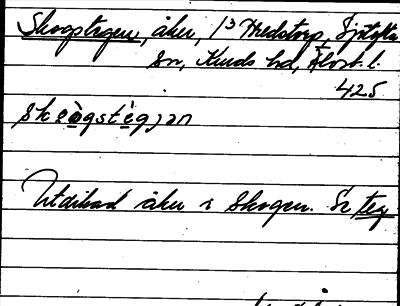 Skogstegen, åker, 1³ Medstorp, Sjötofta
sn, Kinds hd, Älvsb. l.
425
Utdikad åker i Skogen. Se teg